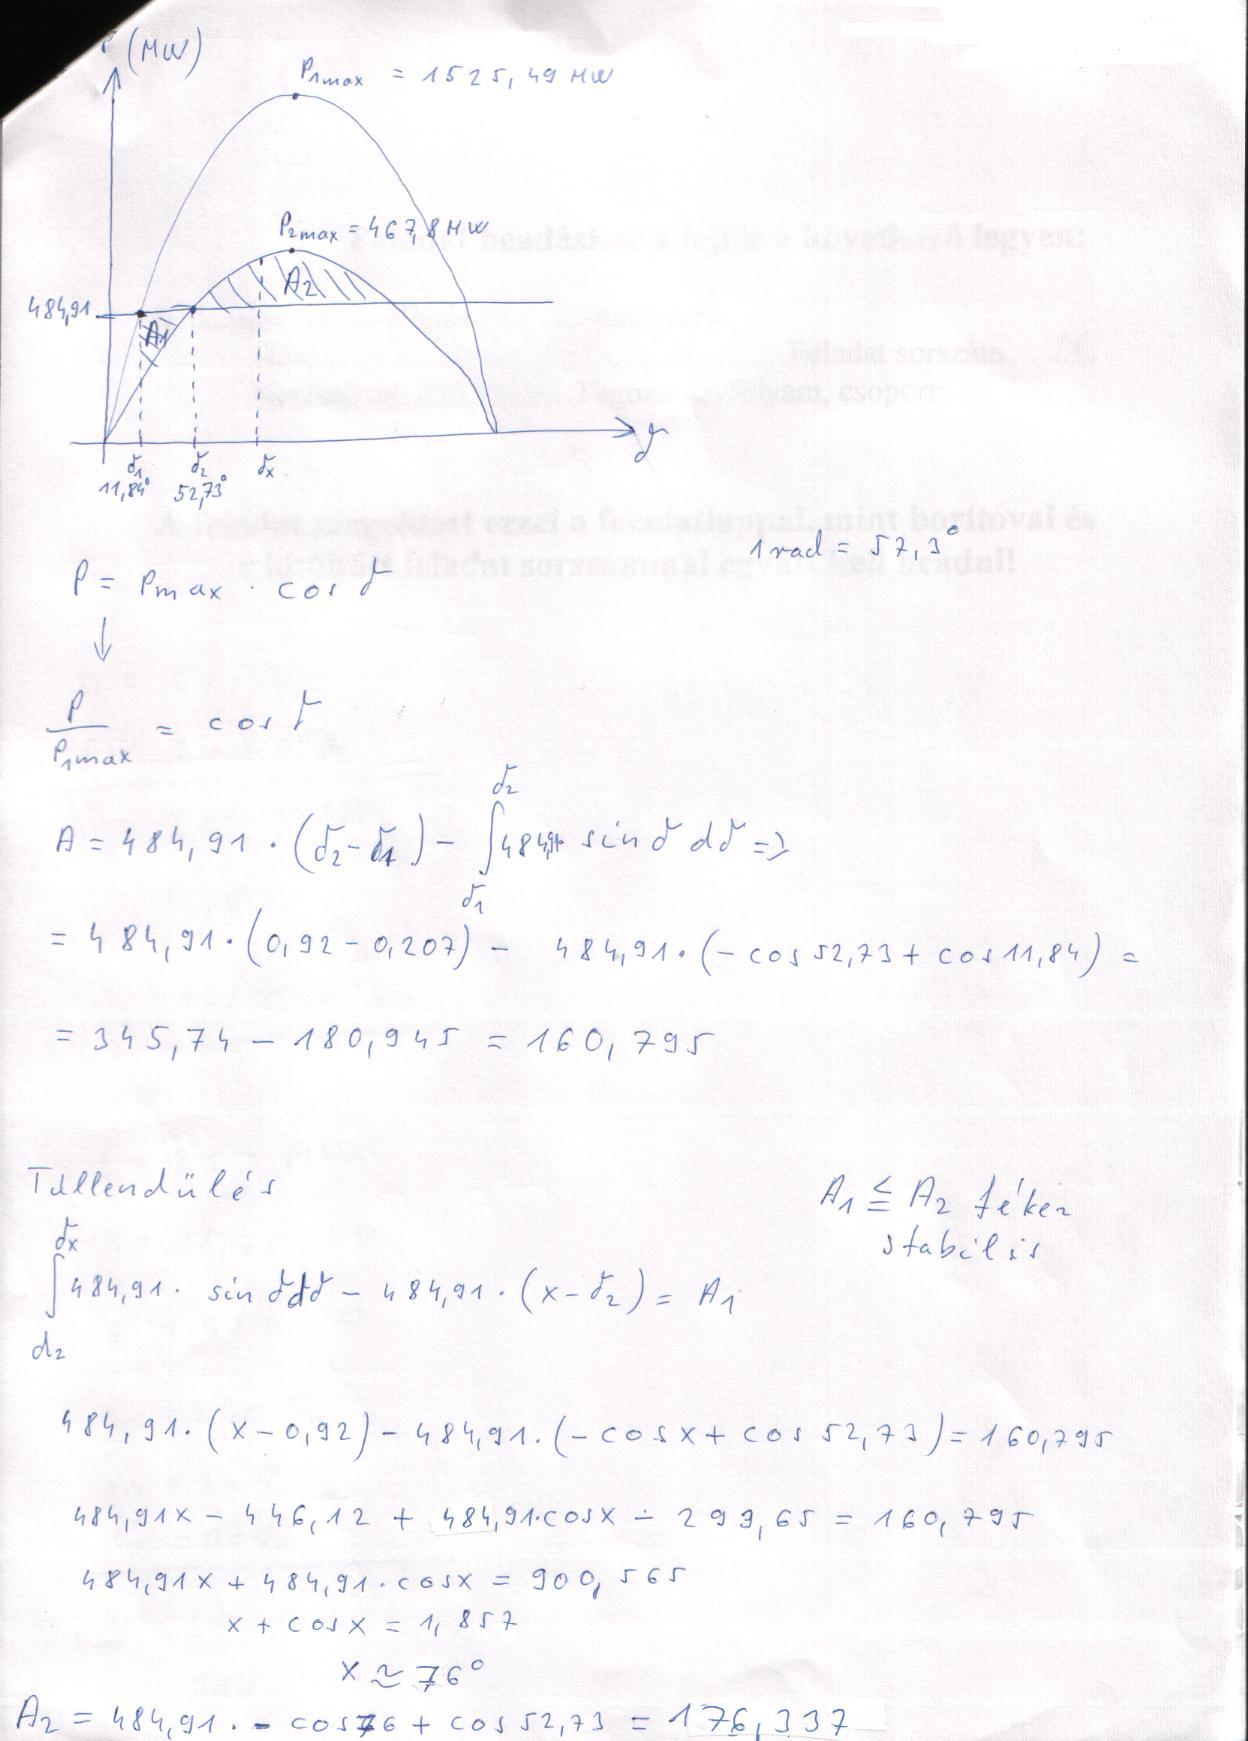 P (MW)
P1max = 1525,49 MW
P2max = 467,8 MW
484,91
A1
A2
δ1 δ2 δx
11,84° 52,73°
1 rad = 57,3°
P = Pmax · cos δ
↓
P / P1max = cos δ
A = 484,91 · (δ2 - δ1) - ∫ δ1 δ2 484,91 sin δ dδ =>
= 484,91 · (0,92 - 0,207) - 484,91 · (- cos 52,73 + cos 11,84) =
= 345,74 - 180,945 = 160,795
Túllendülés
A1 ≦ A2 fékez
stabilis
∫ d2 δx 484,91 · sin δdδ - 484,91 · (x - δ2) = A1
484,91 · (x - 0,92) - 484,91 · (- cos x + cos 52,73) = 160,795
484,91x - 446,12 + 484,91·cosx - 293,65 = 160,795
484,91x + 484,91 · cosx = 900,565
x + cos x = 1,857
x ≈ 76°
A2 = 484,91 · - cos76 + cos 52,73 = 176,337